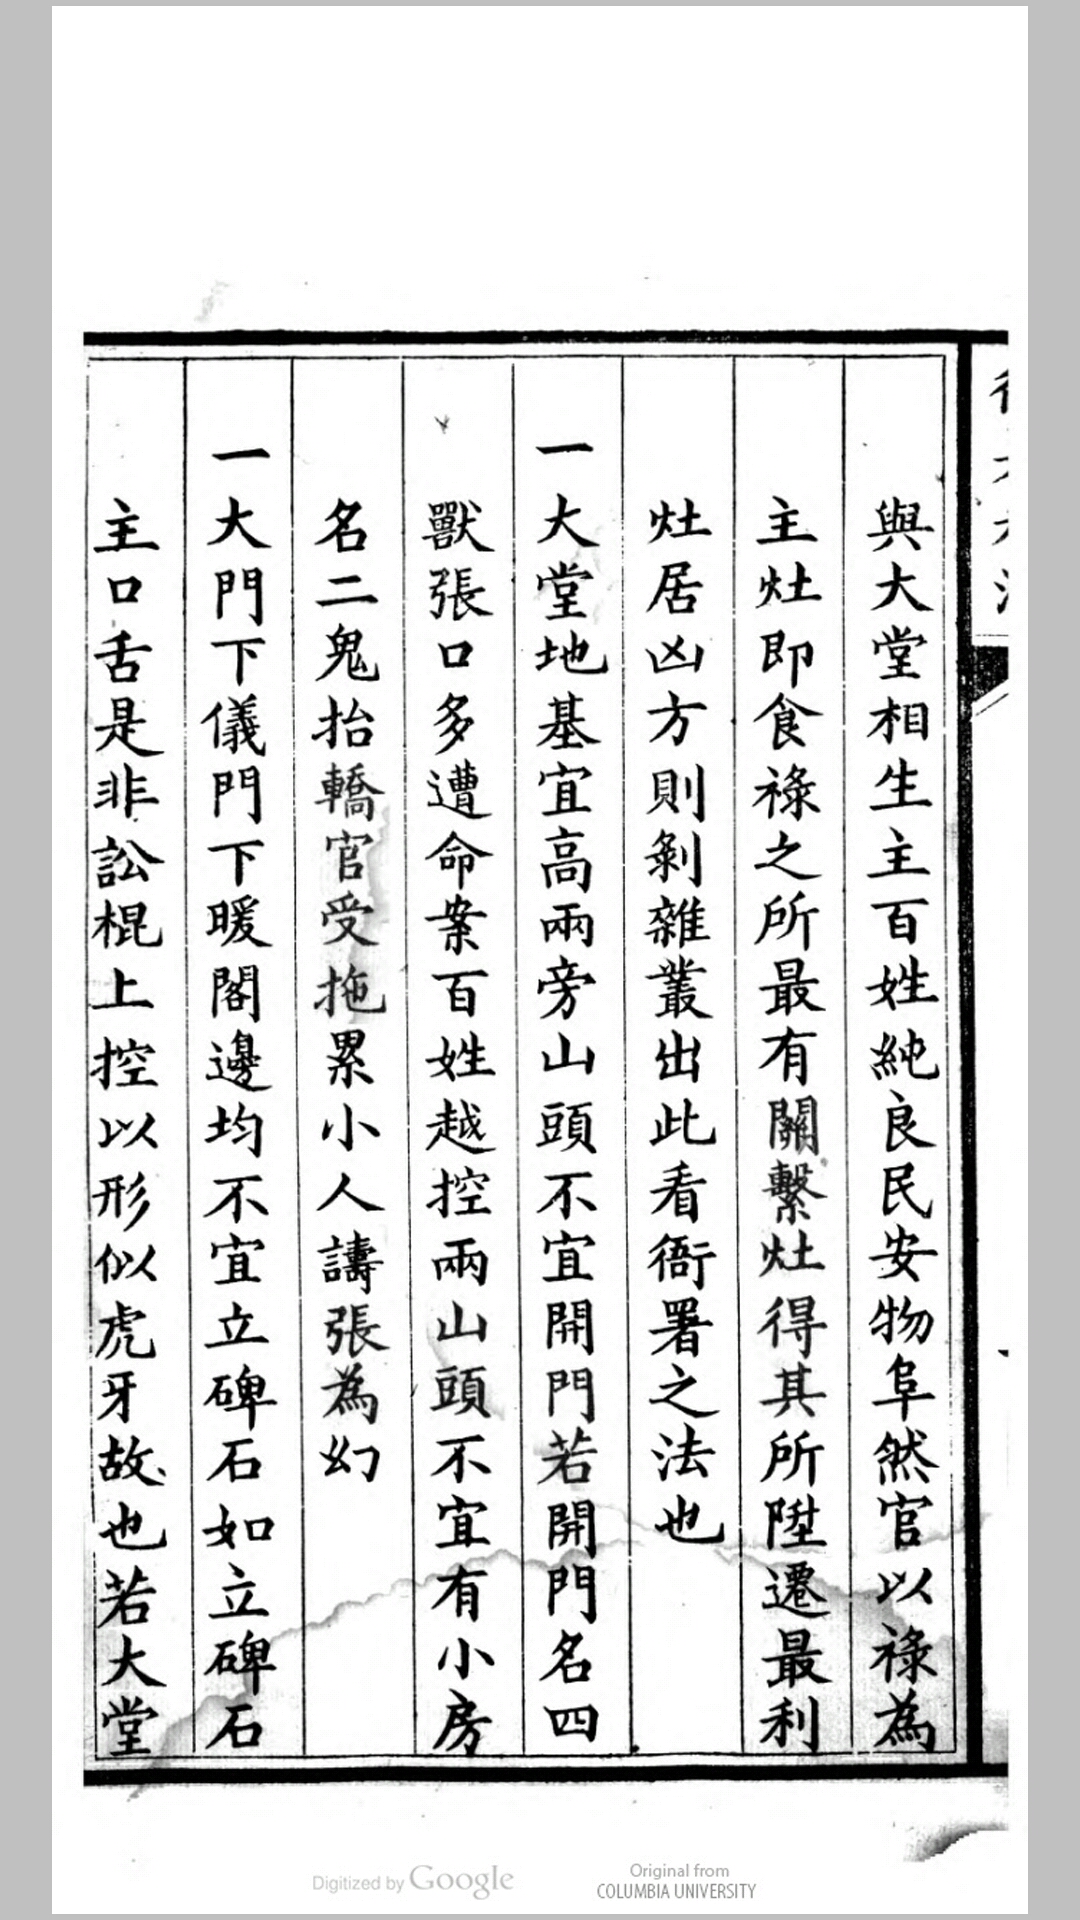 與大堂相生主百姓純良民安物阜然官以祿為
主灶即食祿之所最有關繫灶得其所陞遷最利
灶居凶方則剝雜叢出此看衙署之法也
一大堂地基宜高兩旁山頭不宜開門若開門名四
獸張口多遭命案百姓越控兩山頭不宜有小房
名二鬼抬轎官受拖累小人譸張為幻
一大門下儀門下暖閣邊均不宜立碑石如立碑石
主口舌是非訟棍上控以形似虎牙故也若大堂
Digitized by Google
Original from
COLUMBIA UNIVERSITY